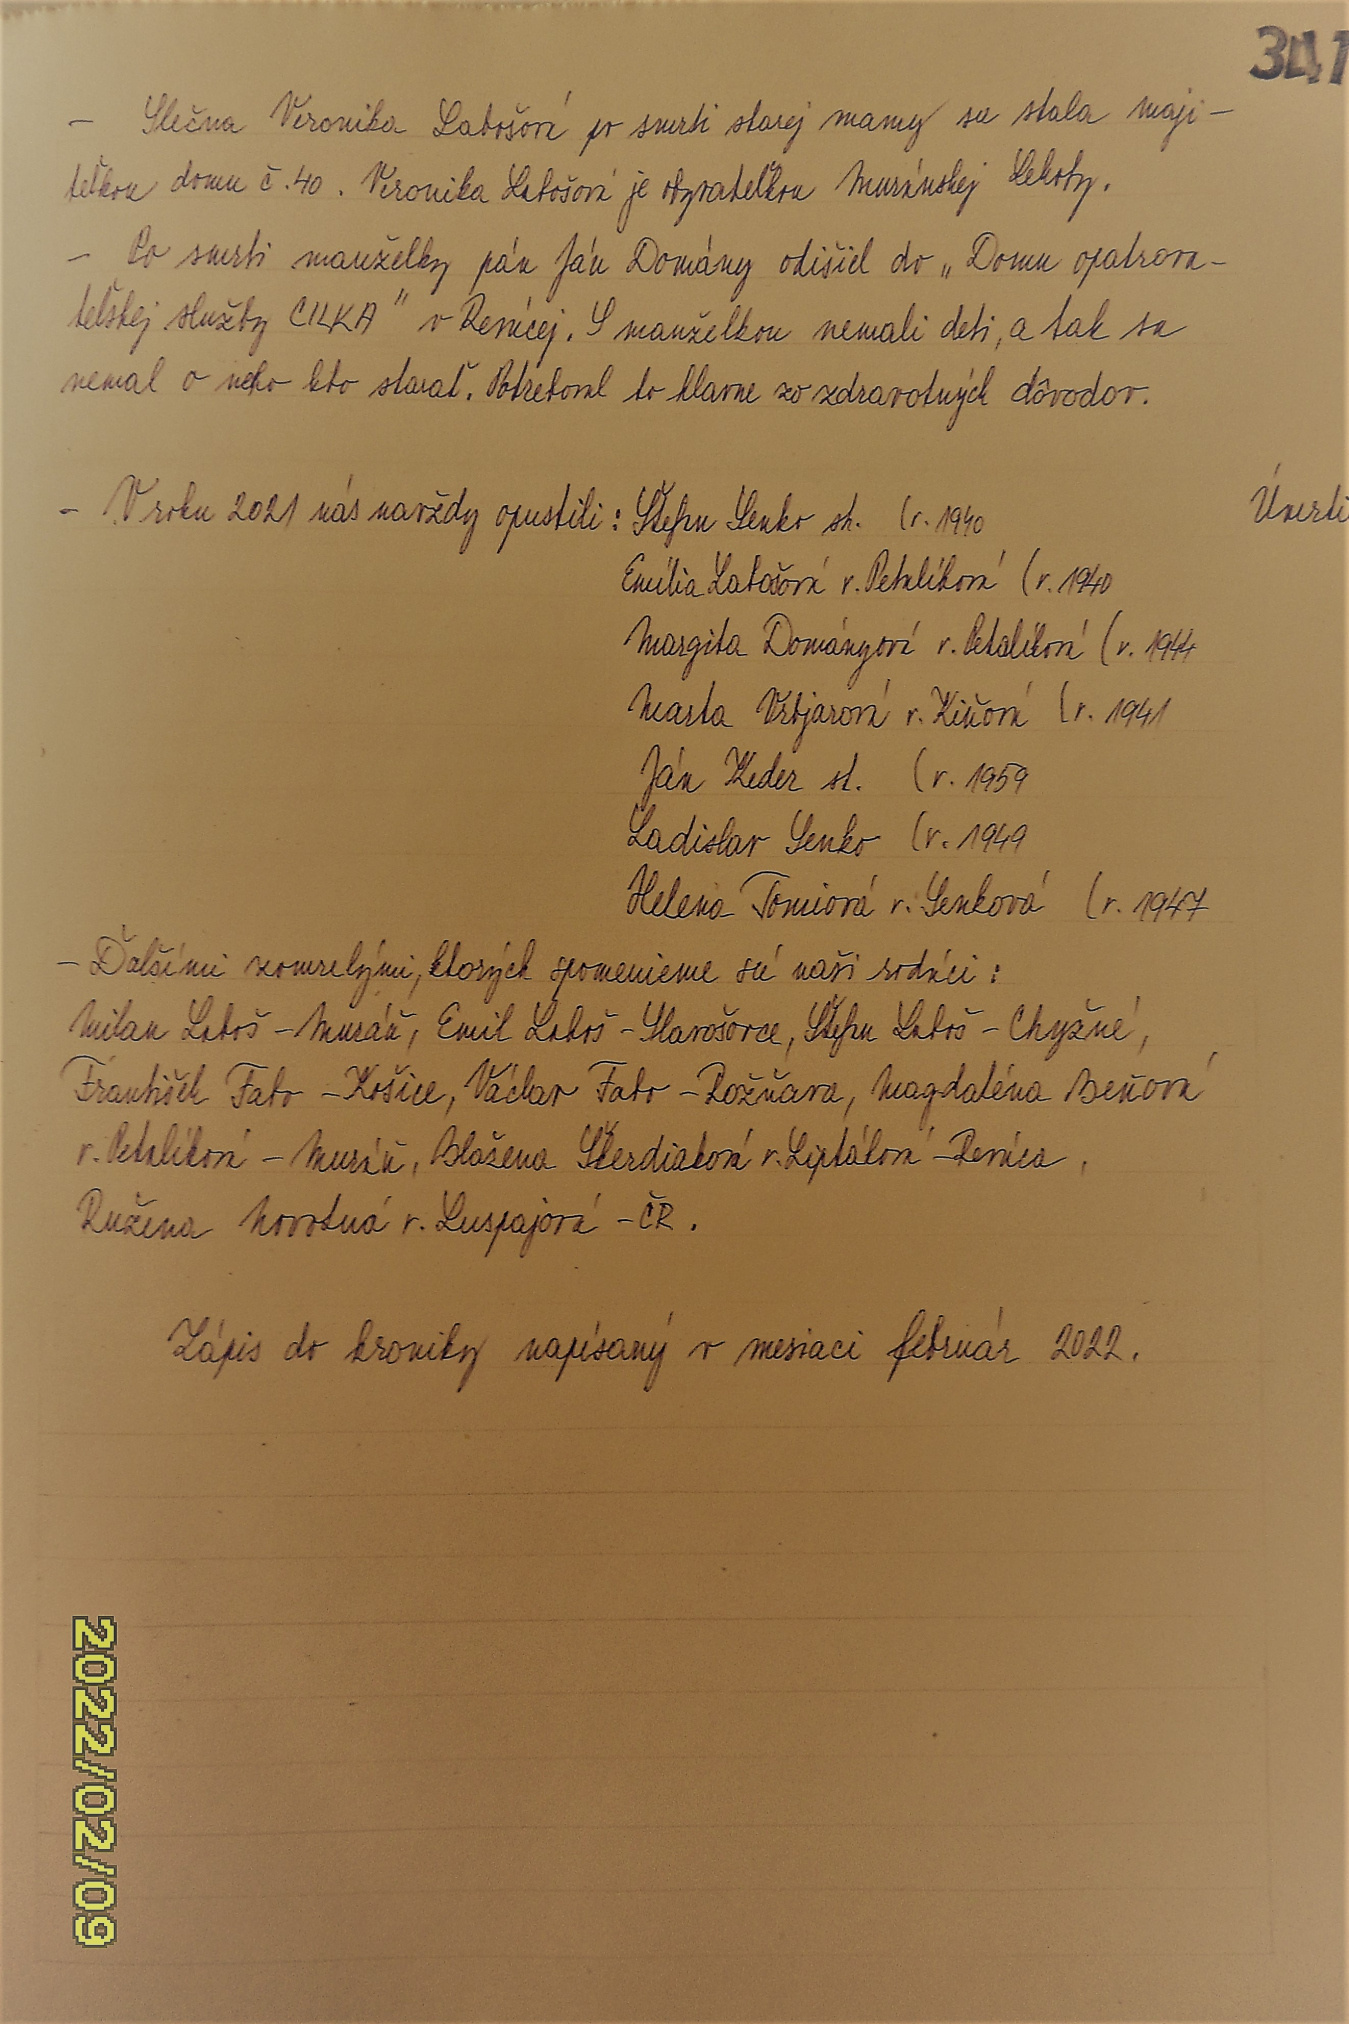 341
- Slečna Veronika Labošová po smrti starej mamy sa stala maji-
teľkou domu č.40. Veronika Labošová je obyvateľkou Muránskej Lehoty.
- Po smrti manželky pán Ján Domány odišiel do „Domu opatrova-
teľskej služby CILKA" v Revúcej. S manželkou nemali deti, a tak sa
nemal o neho kto starať. Potreboval to hlavne zo zdravotných dôvodov.
- V roku 2021 nás navždy opustili: Štefan Senko st. (r. 1940
Úmrti
Emília Labošová r. Petalíková (r. 1940
Margita Dományová r. Petalíková (r. 1944
Marta Vrbjarová r. Kiňová (r. 1941
Ján Keder st. (r. 1959
Ladislav Senko (r. 1949
Helena Tomiová r. Senková (r. 1947
- Ďalšími zomrelými, ktorých spomenieme sú naši rodáci:
Milan Laboš - Muráň, Emil Laboš - Slavošovce, Štefan Laboš - Chyžné,
František Fabo - Košice, Václav Fabo - Rožňava, Magdaléna Beňová
r. Petalíková - Muráň, Blažena Škerdiaková r. Liptálová - Revúca,
Ružena Novotná r. Luspajová - ČR.
Zápis do kroniky napísaný v mesiaci február 2022.
2022/02/09